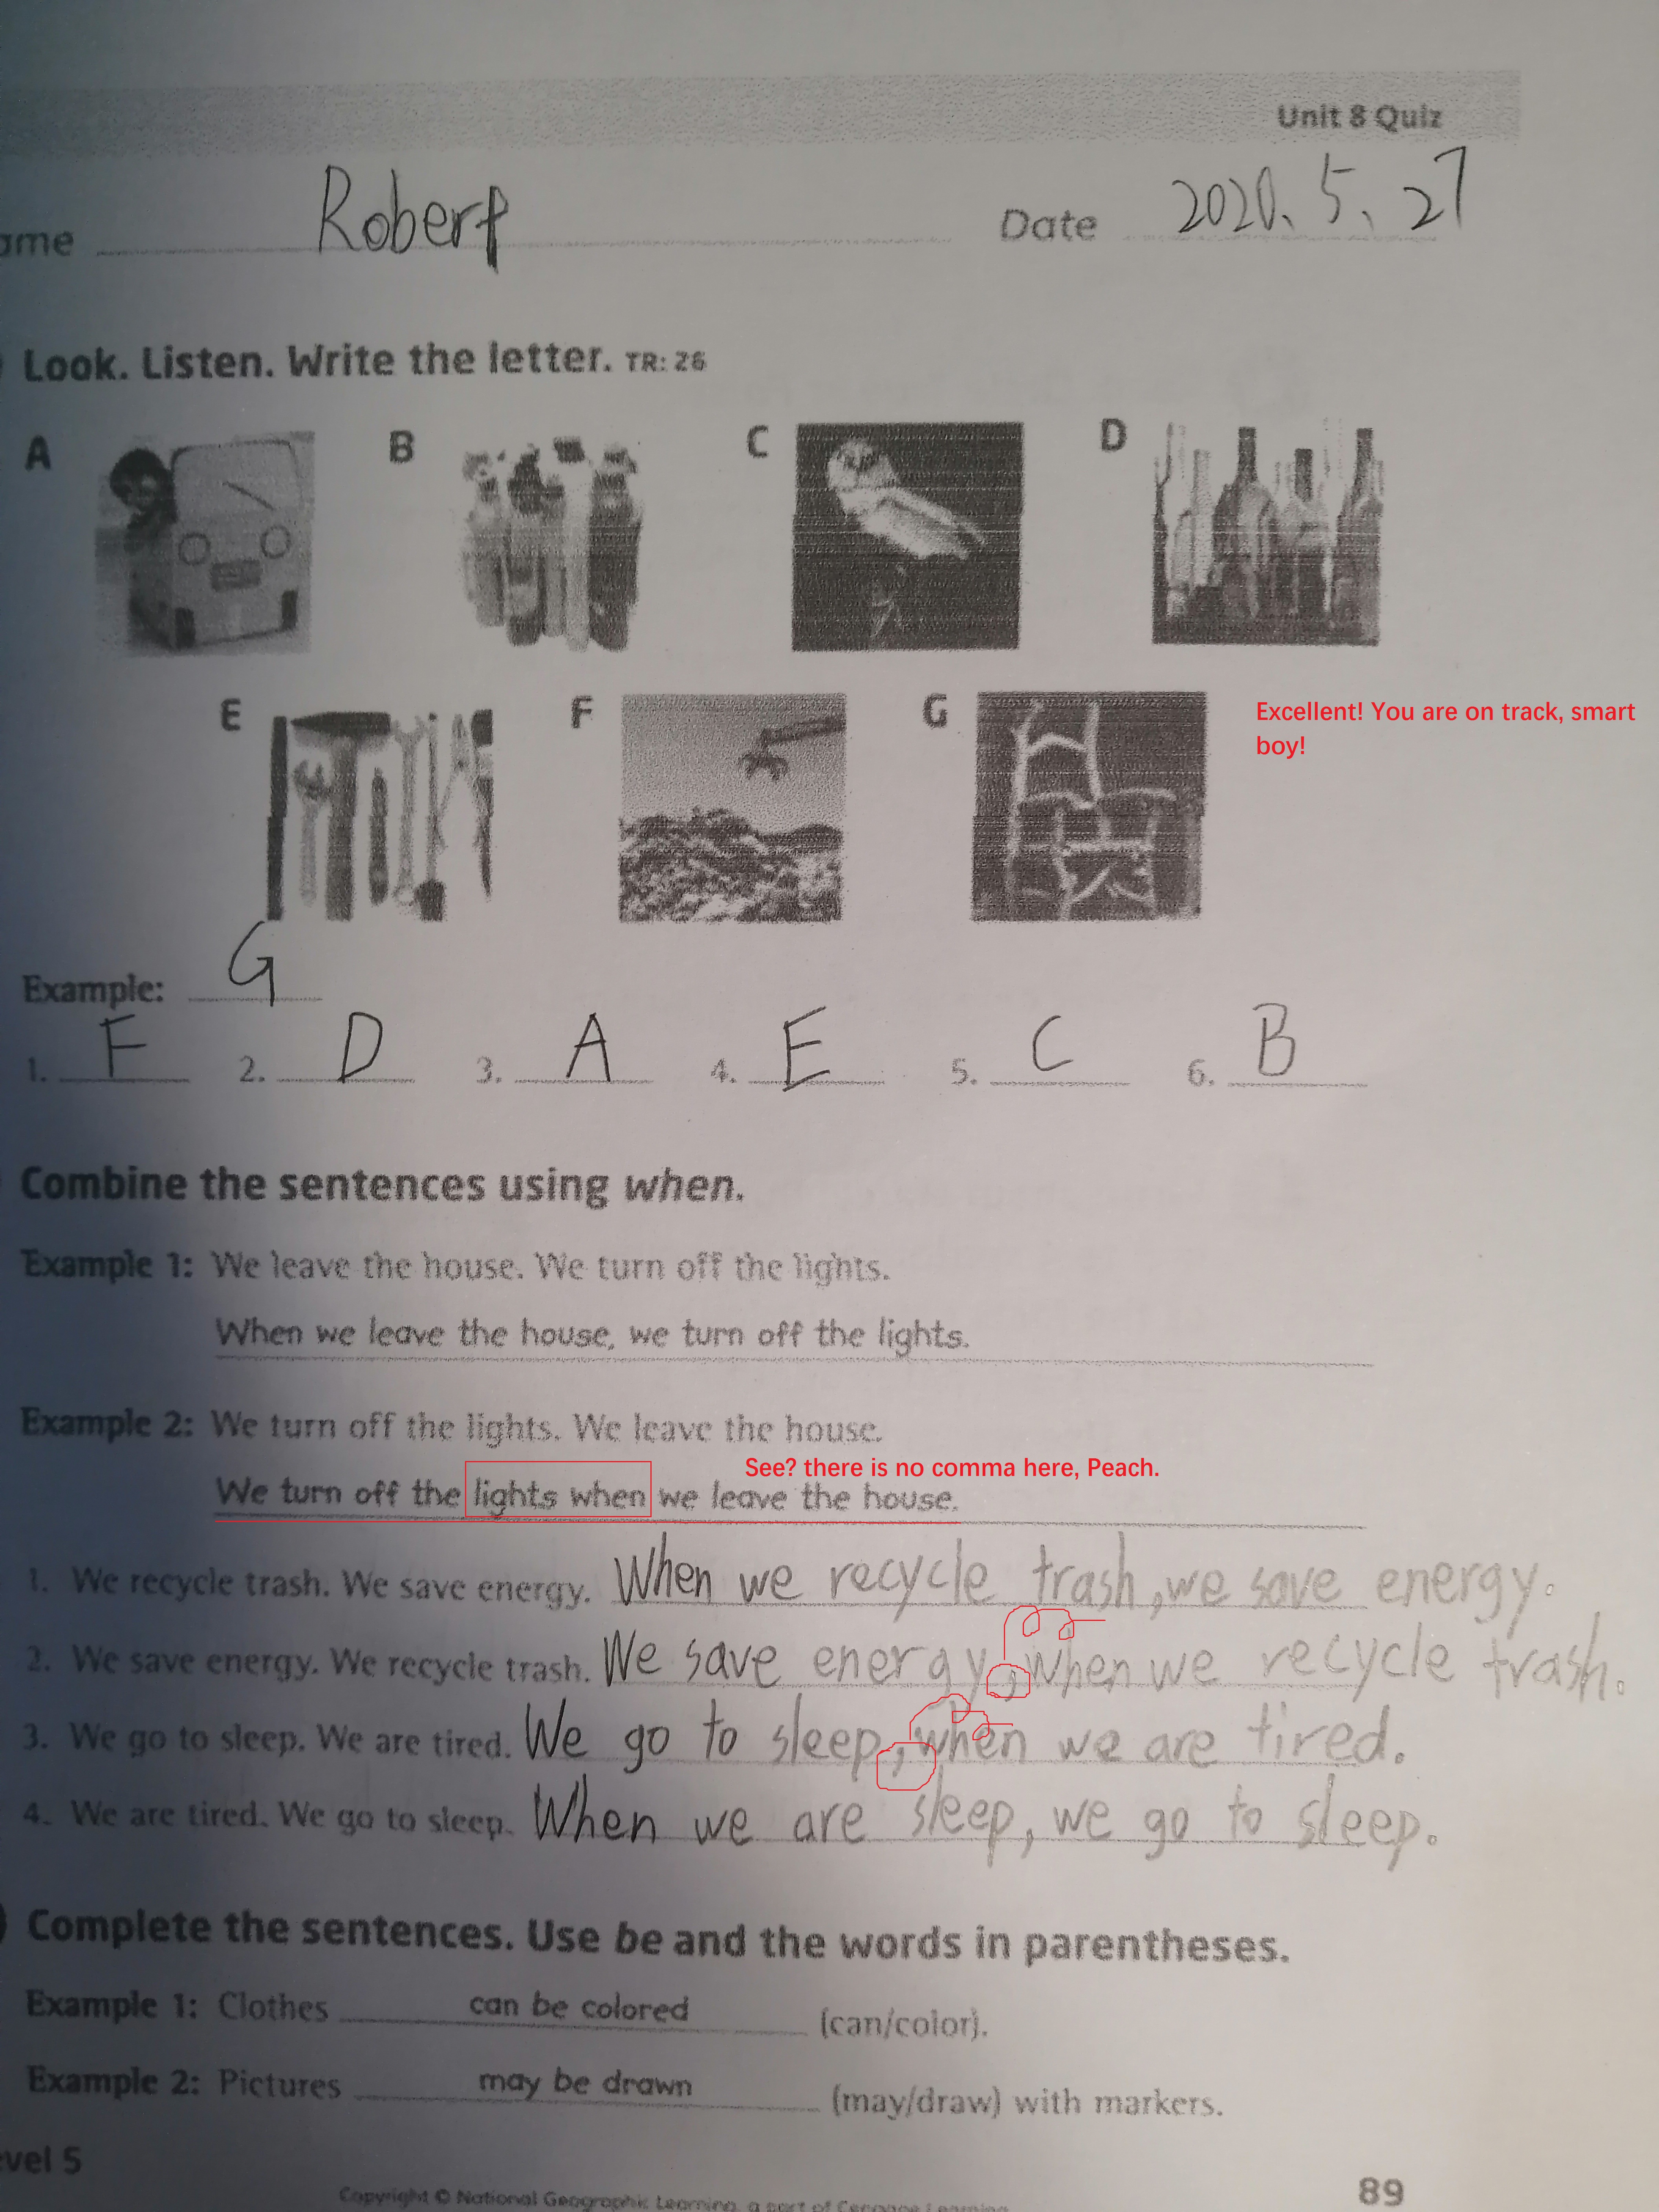 Unit 8 Quiz
ame Robert Date 2020. 5. 27
Look. Listen. Write the letter. TR: 26
A B C D
E F G
Excellent! You are on track, smart
boy!
Example: G
1. F 2. D 3. A 4. E 5. C 6. B
Combine the sentences using when.
Example 1: We leave the house. We turn off the lights.
When we leave the house, we turn off the lights.
Example 2: We turn off the lights. We leave the house.
See? there is no comma here, Peach.
We turn off the lights when we leave the house.
1. We recycle trash. We save energy. When we recycle trash, we save energy.
2. We save energy. We recycle trash. We save energy, when we recycle trash.
3. We go to sleep. We are tired. We go to sleep, when we are tired.
4. We are tired. We go to sleep. When we are sleep, we go to sleep.
Complete the sentences. Use be and the words in parentheses.
Example 1: Clothes can be colored (can/color).
Example 2: Pictures may be drawn (may/draw) with markers.
vel 5
89
Copyright © National Geographic Learning, a part of Cengage Learning